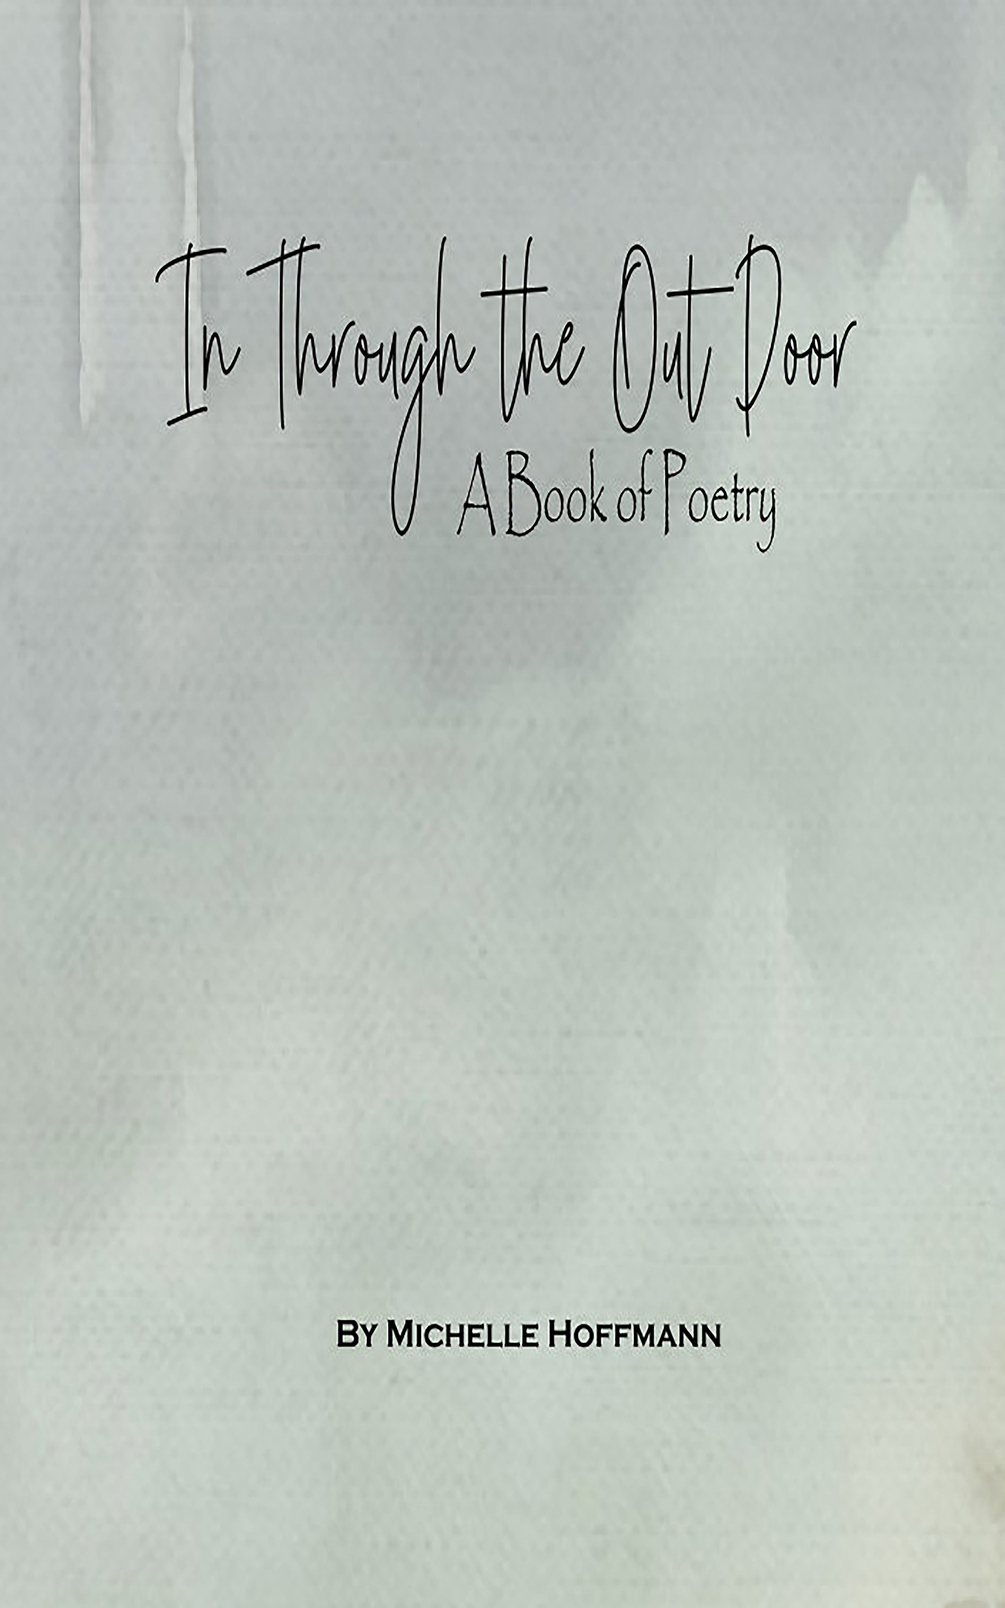 In Through the Out Door
A Book of Poetry
BY MICHELLE HOFFMANN